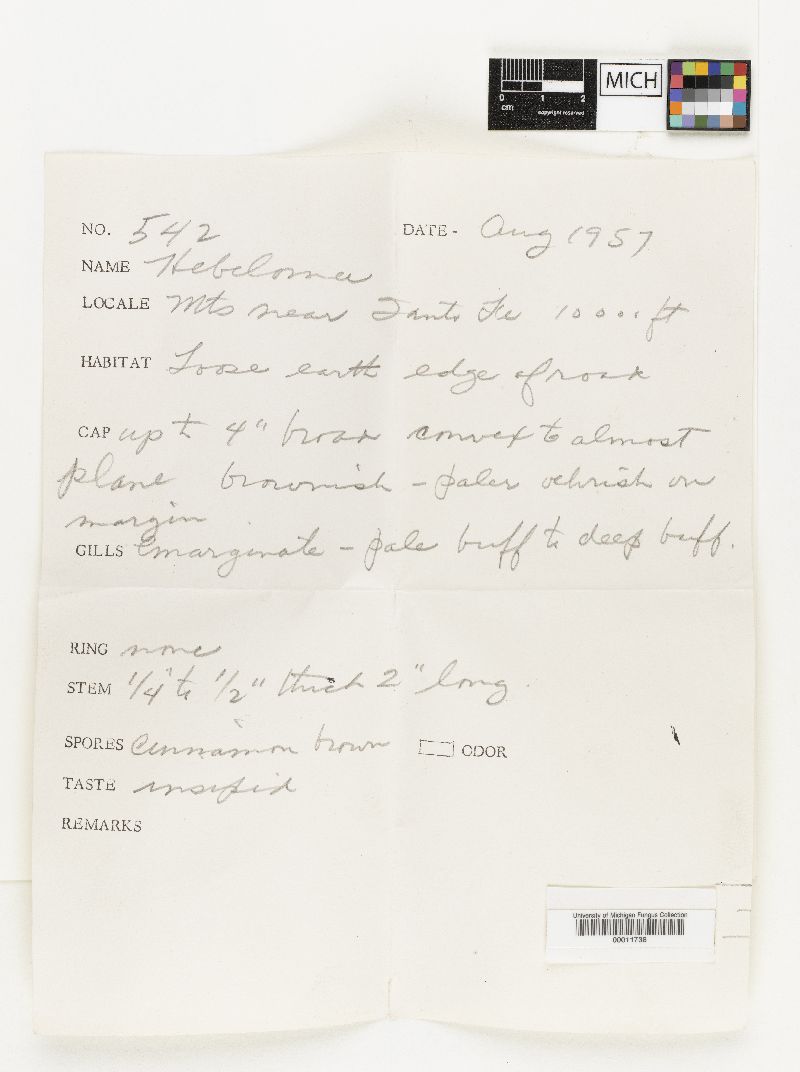 0 1 2
cm
copyright reserved
MICH
NO. 542 DATE - Aug 1957
NAME Hebeloma
LOCALE Mts near Santa Fe 10000 ft
HABITAT Loose earth edge of road
CAP up to 4" broad convex to almost
plane brownish - paler ochrish on
margin
GILLS Emarginate - pale buff to deep buff.
RING none
STEM 1/4" to 1/2" thick 2" long.
SPORES Cinnamon brown ODOR
TASTE insipid
REMARKS
University of Michigan Fungus Collection
00011738